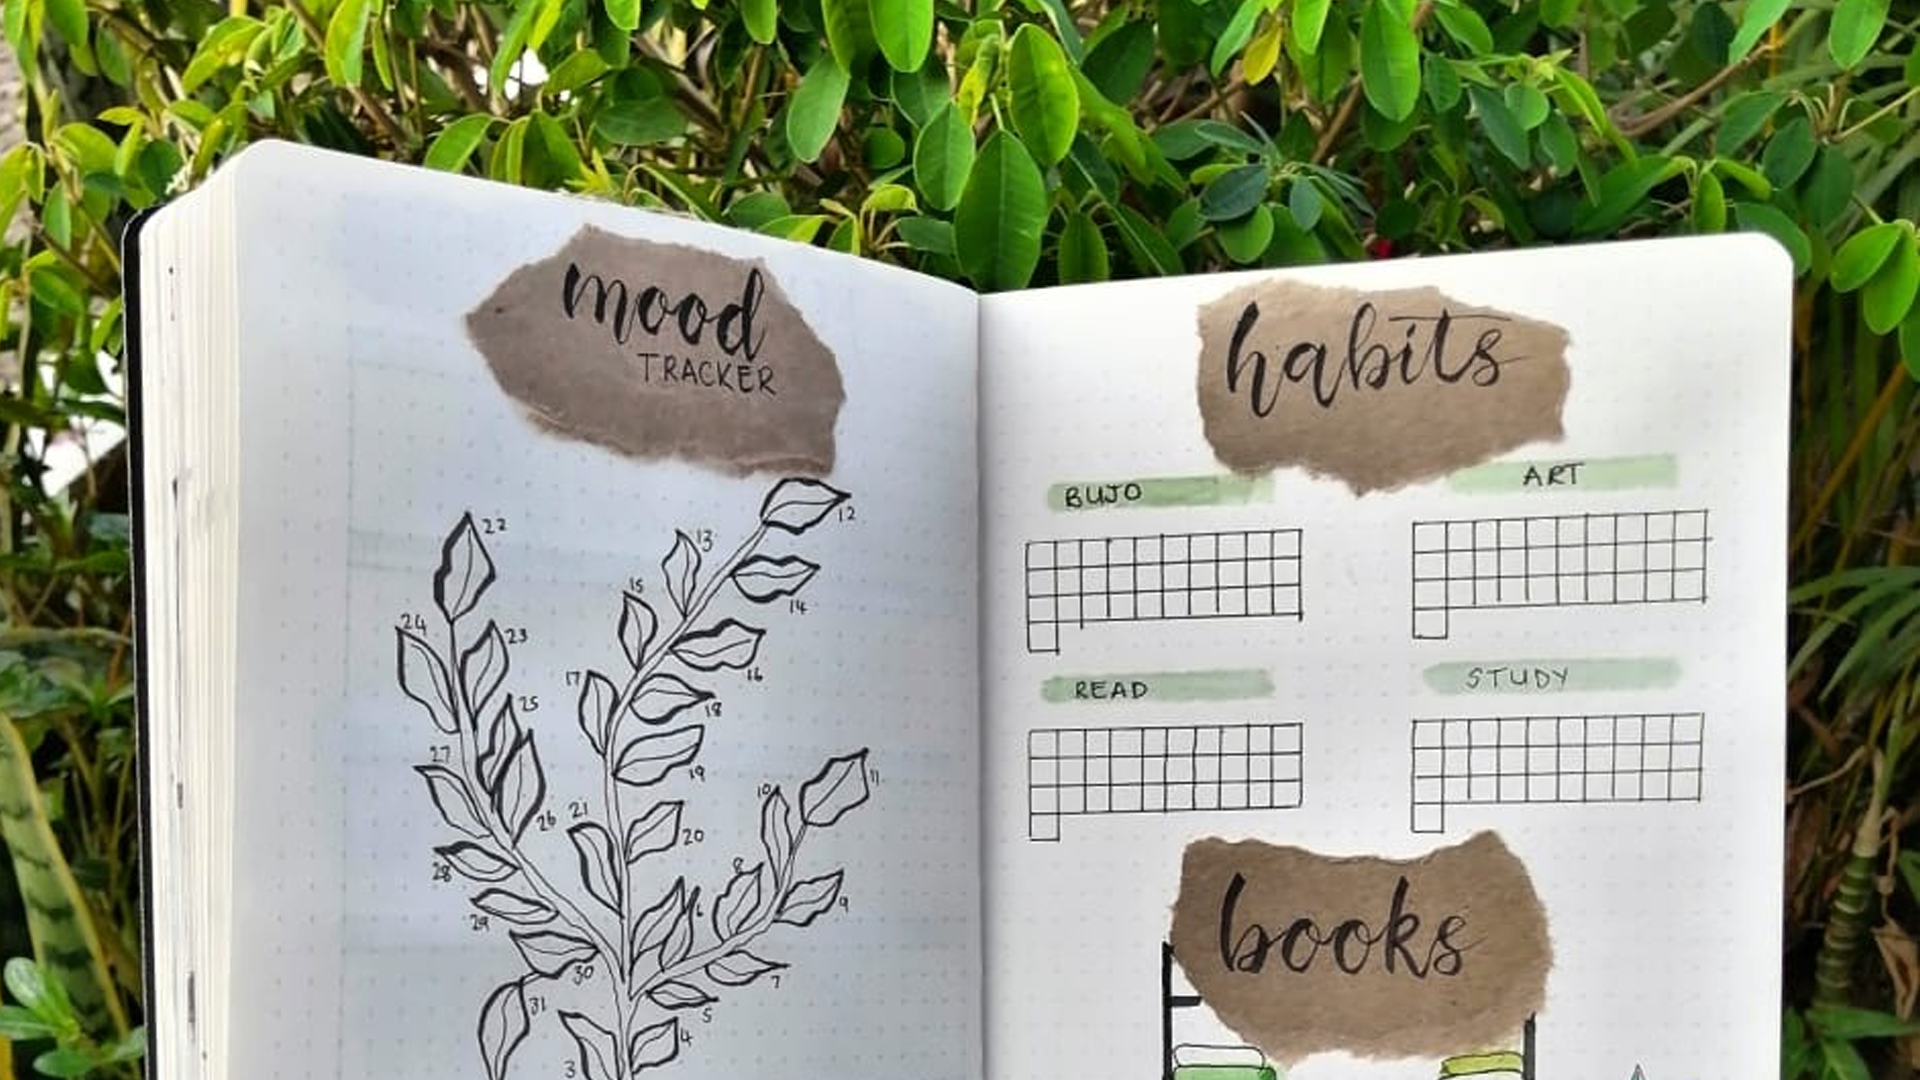 mood
TRACKER
12
22
13
15
14
24
23
16
17
25
18
27
19
11
10
21
26
20
28
8
9
29
6
30
7
31
5
4
3
habits
BUJO
ART
READ
STUDY
books